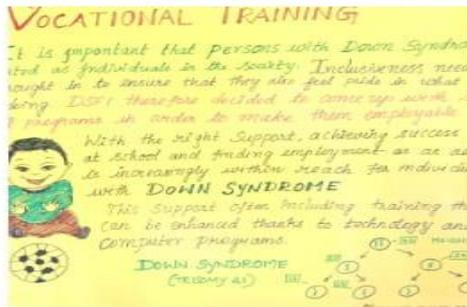 VOCATIONAL TRAINING
It is important that persons with Down Syndro
ted as individuals in the society. Inclusiveness need
ought in to ensure that they also feel pride in what
doing. DSFI therefore decided to come up with
programs in order to make them employable
With the right support, achieving success
at school and finding employment as an a
is increasingly within reach for individu
with DOWN SYNDROME
This support often including training th
can be enhanced thanks to technology an
computer programs.
DOWN SYNDROME
(TRISOMY 21)